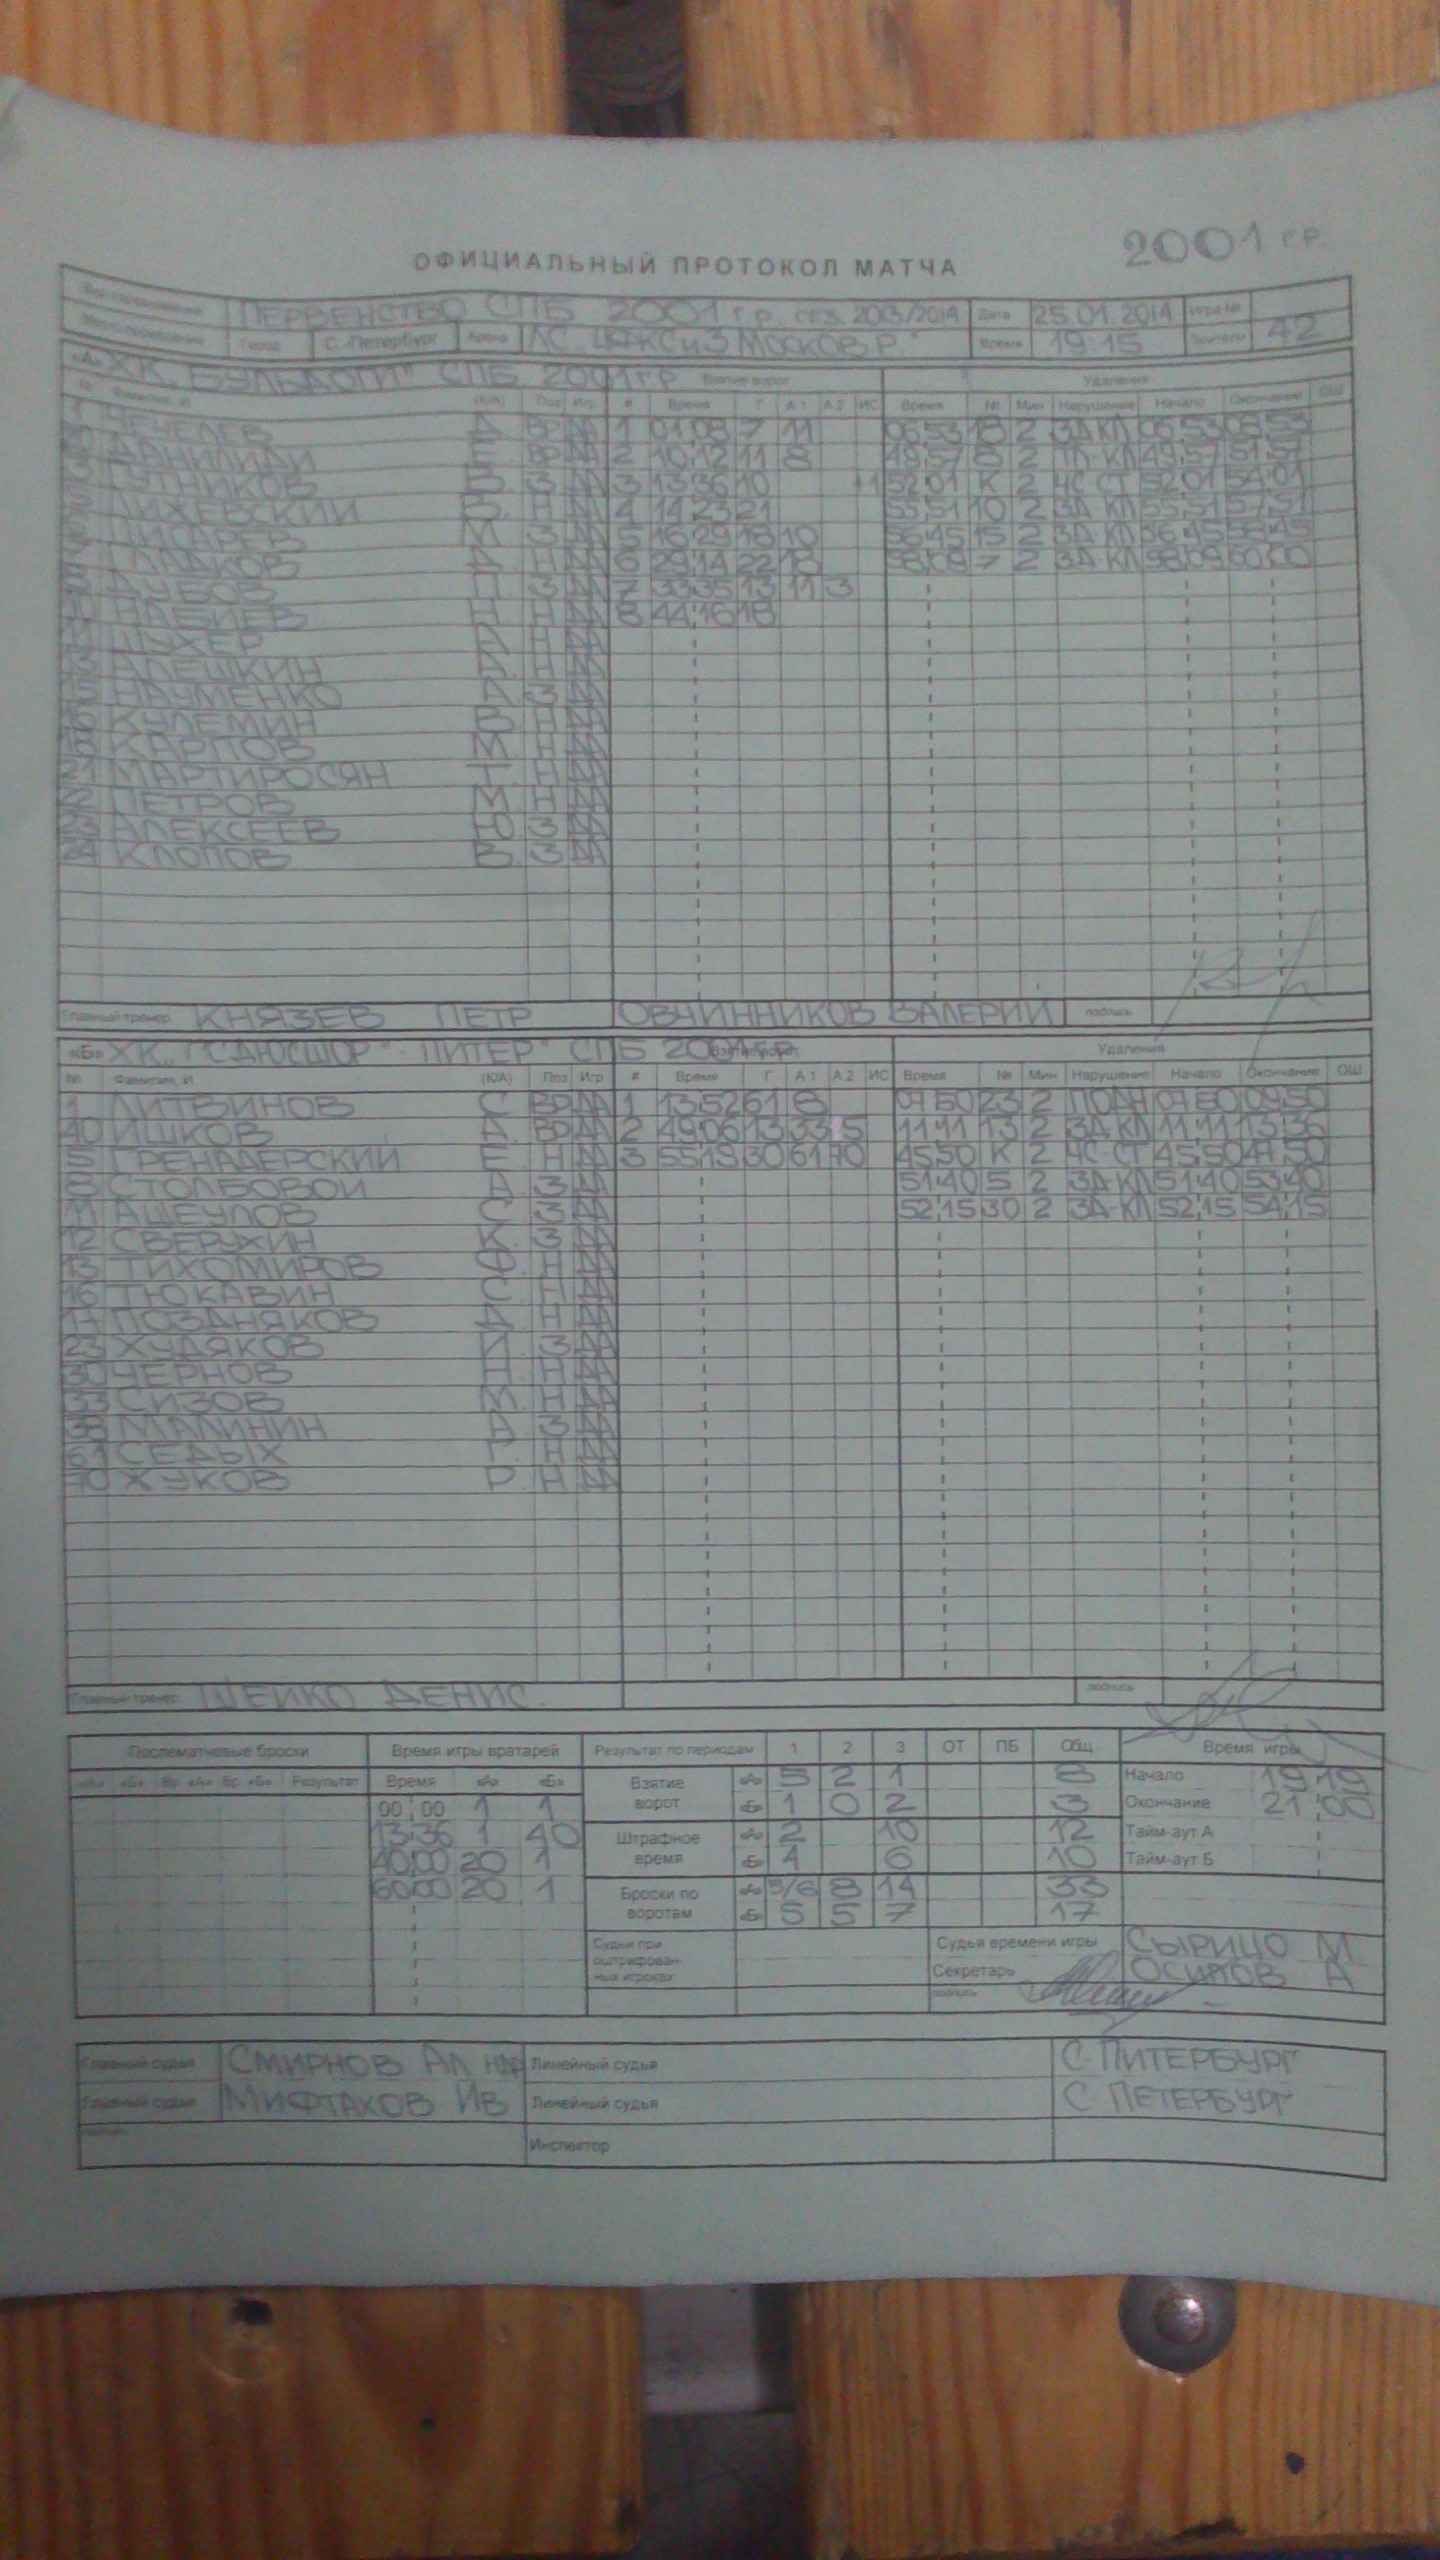 2001 г.р.
ОФИЦИАЛЬНЫЙ ПРОТОКОЛ МАТЧА
ПЕРВЕНСТВО СПБ 2001 г.р. СЕЗ. 2013/2014 Дата 25.01.2014 Игра №
Город С.-Петербург Арена Время 19.15 Зрители 42
«А» ХК "БУЛЬДОГИ" СПБ 2001 ГР Взятие ворот Удаления
№ Фамилия, И (К/А) Поз Игр # Время Г А1 А2 ИС Время № Мин Нарушение Начало Окончание ОШ
1 ЧЕЧЕЛЕВ А. ВР ДА 1 01:08 7 11 06:53 18 2 ЗД-КЛ 06:53 08:53
20 ДАНИЛИДИ Е. ВР ДА 2 10:12 11 8 49:57 8 2 49:57 51:57
3 В. З ДА 3 13:36 10 52:01 К 2 ЧС-СТ 52:01 54:01
ЛИХЕВСКИЙ Н ДА 4 14:23 21 55:51 10 2 ЗД-КЛ 55:51 57:51
ПИСАРЕВ М. Н ДА 5 16:29 18 10 56:45 15 2 ЗД-КЛ 56:45 58:45
Н ДА 6 29:14 22 18 58:09 7 2 ЗД-КЛ 58:09 60:00
ДУБОВ П. З ДА 7 33:35 13 11 3
НАБИЕВ Н. Н ДА 8 44:16 18
Н ДА
АЛЕШКИН Н ДА
НАУМЕНКО А. З ДА
КУЛЕМИН В. Н ДА
КАРПОВ М. Н ДА
21 МАРТИРОСЯН Т. Н ДА
22 ПЕТРОВ М. Н ДА
23 АЛЕКСЕЕВ Ю. З ДА
24 КЛОПОВ В. З ДА
Главный тренер КНЯЗЕВ ПЕТР ОВЧИННИКОВ ВАЛЕРИЙ подпись
«Б» ХК "СДЮСШОР" - ПИТЕР" СПБ 2001 г.р. Взятие ворот Удаления
№ Фамилия, И (К/А) Поз Игр # Время Г А1 А2 ИС Время № Мин Нарушение Начало Окончание ОШ
1 ЛИТВИНОВ С. ВР ДА 1 13:52 61 8 07:50 23 2 ПОДН 07:50 09:50
40 ИШКОВ А. ВР ДА 2 49:06 13 33 15 11:11 13 2 ЗД-КЛ 11:11 13:36
5 ГРЕНАДЕРСКИЙ Е. Н ДА 3 55:19 30 61 70 45:50 К 2 ЧС-СТ 45:50 47:50
8 СТОЛБОВОЙ А. З ДА 51:40 5 2 ЗД-КЛ 51:40 53:40
11 АЩЕУЛОВ С. З ДА 52:15 30 2 ЗД-КЛ 52:15 54:15
12 СВЕРУХИН К. З ДА
13 ТИХОМИРОВ Ф. Н ДА
16 ТЮКАВИН С. Н ДА
17 ПОЗДНЯКОВ Д. Н ДА
23 ХУДЯКОВ И. З ДА
30 ЧЕРНОВ Н. Н ДА
33 СИЗОВ М. Н ДА
38 МАЛИНИН А. З ДА
61 СЕДЫХ Г. Н ДА
70 ХУКОВ Р. Н ДА
Главный тренер ШЕЙКО ДЕНИС подпись
Послематчевые броски Время игры вратарей Результат по периодам 1 2 3 ОТ ПБ Общ Время игры
«А» «Б» Вр «А» Вр «Б» Результат Время «А» «Б» Взятие ворот «А» 5 2 1 8 Начало 19 19
00:00 1 1 «Б» 1 0 2 3 Окончание 21:00
13:36 1 40 Штрафное время «А» 2 10 12 Тайм-аут А
40:00 20 1 «Б» 4 6 10 Тайм-аут Б
60:00 20 1 Броски по воротам «А» 5/6 8 14 33
«Б» 5 5 7 17
Судьи при оштрафованных игроках Судья времени игры СЫРИЦО М
Секретарь ОСИПОВ А
подпись
Главный судья СМИРНОВ Линейный судья С-ПИТЕРБУРГ
Главный судья МИФТАХОВ ИВ Линейный судья С ПЕТЕРБУРГ
подпись Инспектор